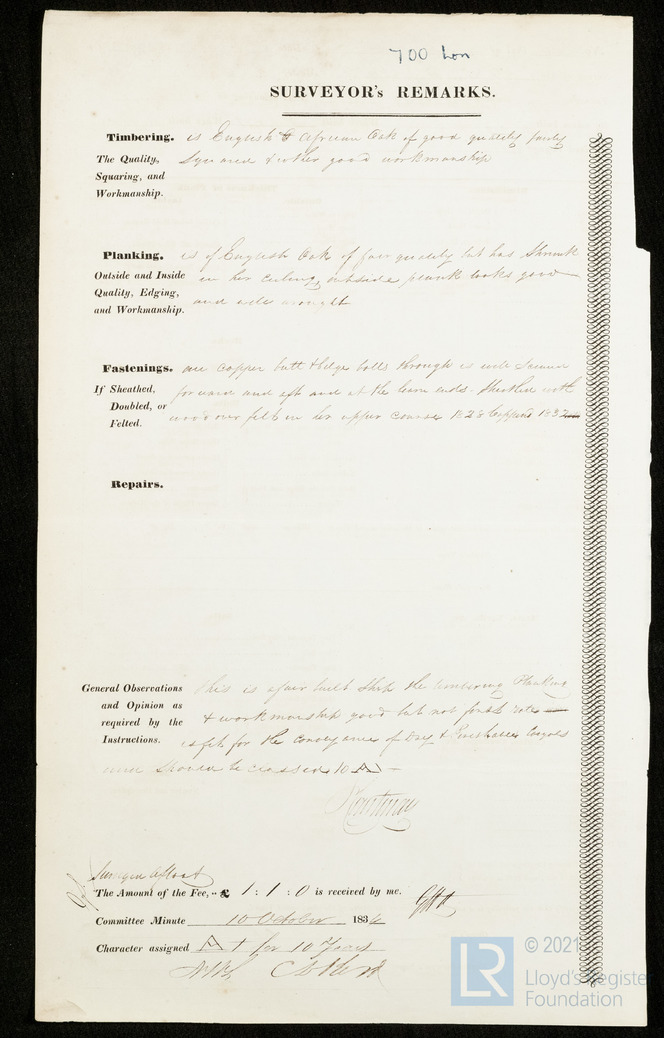 700 ton
SURVEYOR's REMARKS.
Timbering. is English & African Oak of good quality fairly
The Quality, Squaring, and Workmanship.
Squared & other good workmanship
Planking. is of English Oak of fair quality but has Shrunk
Outside and Inside Quality, Edging, and Workmanship.
in her ceiling, outside plank looks good
and well wrought
Fastenings. are copper butt & bilge bolts through is well Secured
If Sheathed, Doubled, or Felted.
forward and aft and at the beam ends. Sheathed with
wood over felt in her upper course 1828 Coppered 1832
Repairs.
General Observations and Opinion as required by the Instructions.
This is a fair built Ship the timbering Planking
& workmanship good but not
is fit for the conveyance of Dry & Perishable Cargoes
and should be classed 10 A
Courtenay
Surveyed Afloat
The Amount of the Fee, .. £ 1 : 1 : 0 is received by me.
Committee Minute 10 October 183
Character assigned A 1 for 10 Years
© 2021
LR
Lloyd's Register
Foundation